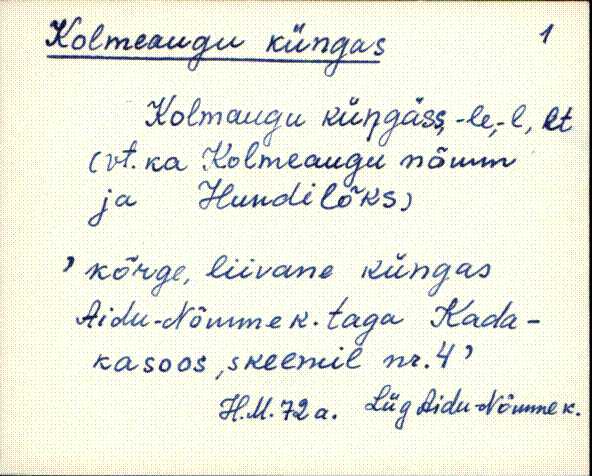 Kolmeaugu küngas 1
Kolmaugu küŋgäss, -le, -l, lt
(vt. ka Kolmeaugu nõmm
ja Hundilõks)
’kõrge, liivane küngas
Aidu-Nõmme k. taga Kada-
kasoos, skeemil nr. 4’
H.M. 72 a. Lüg Aidu-Nõmme k.